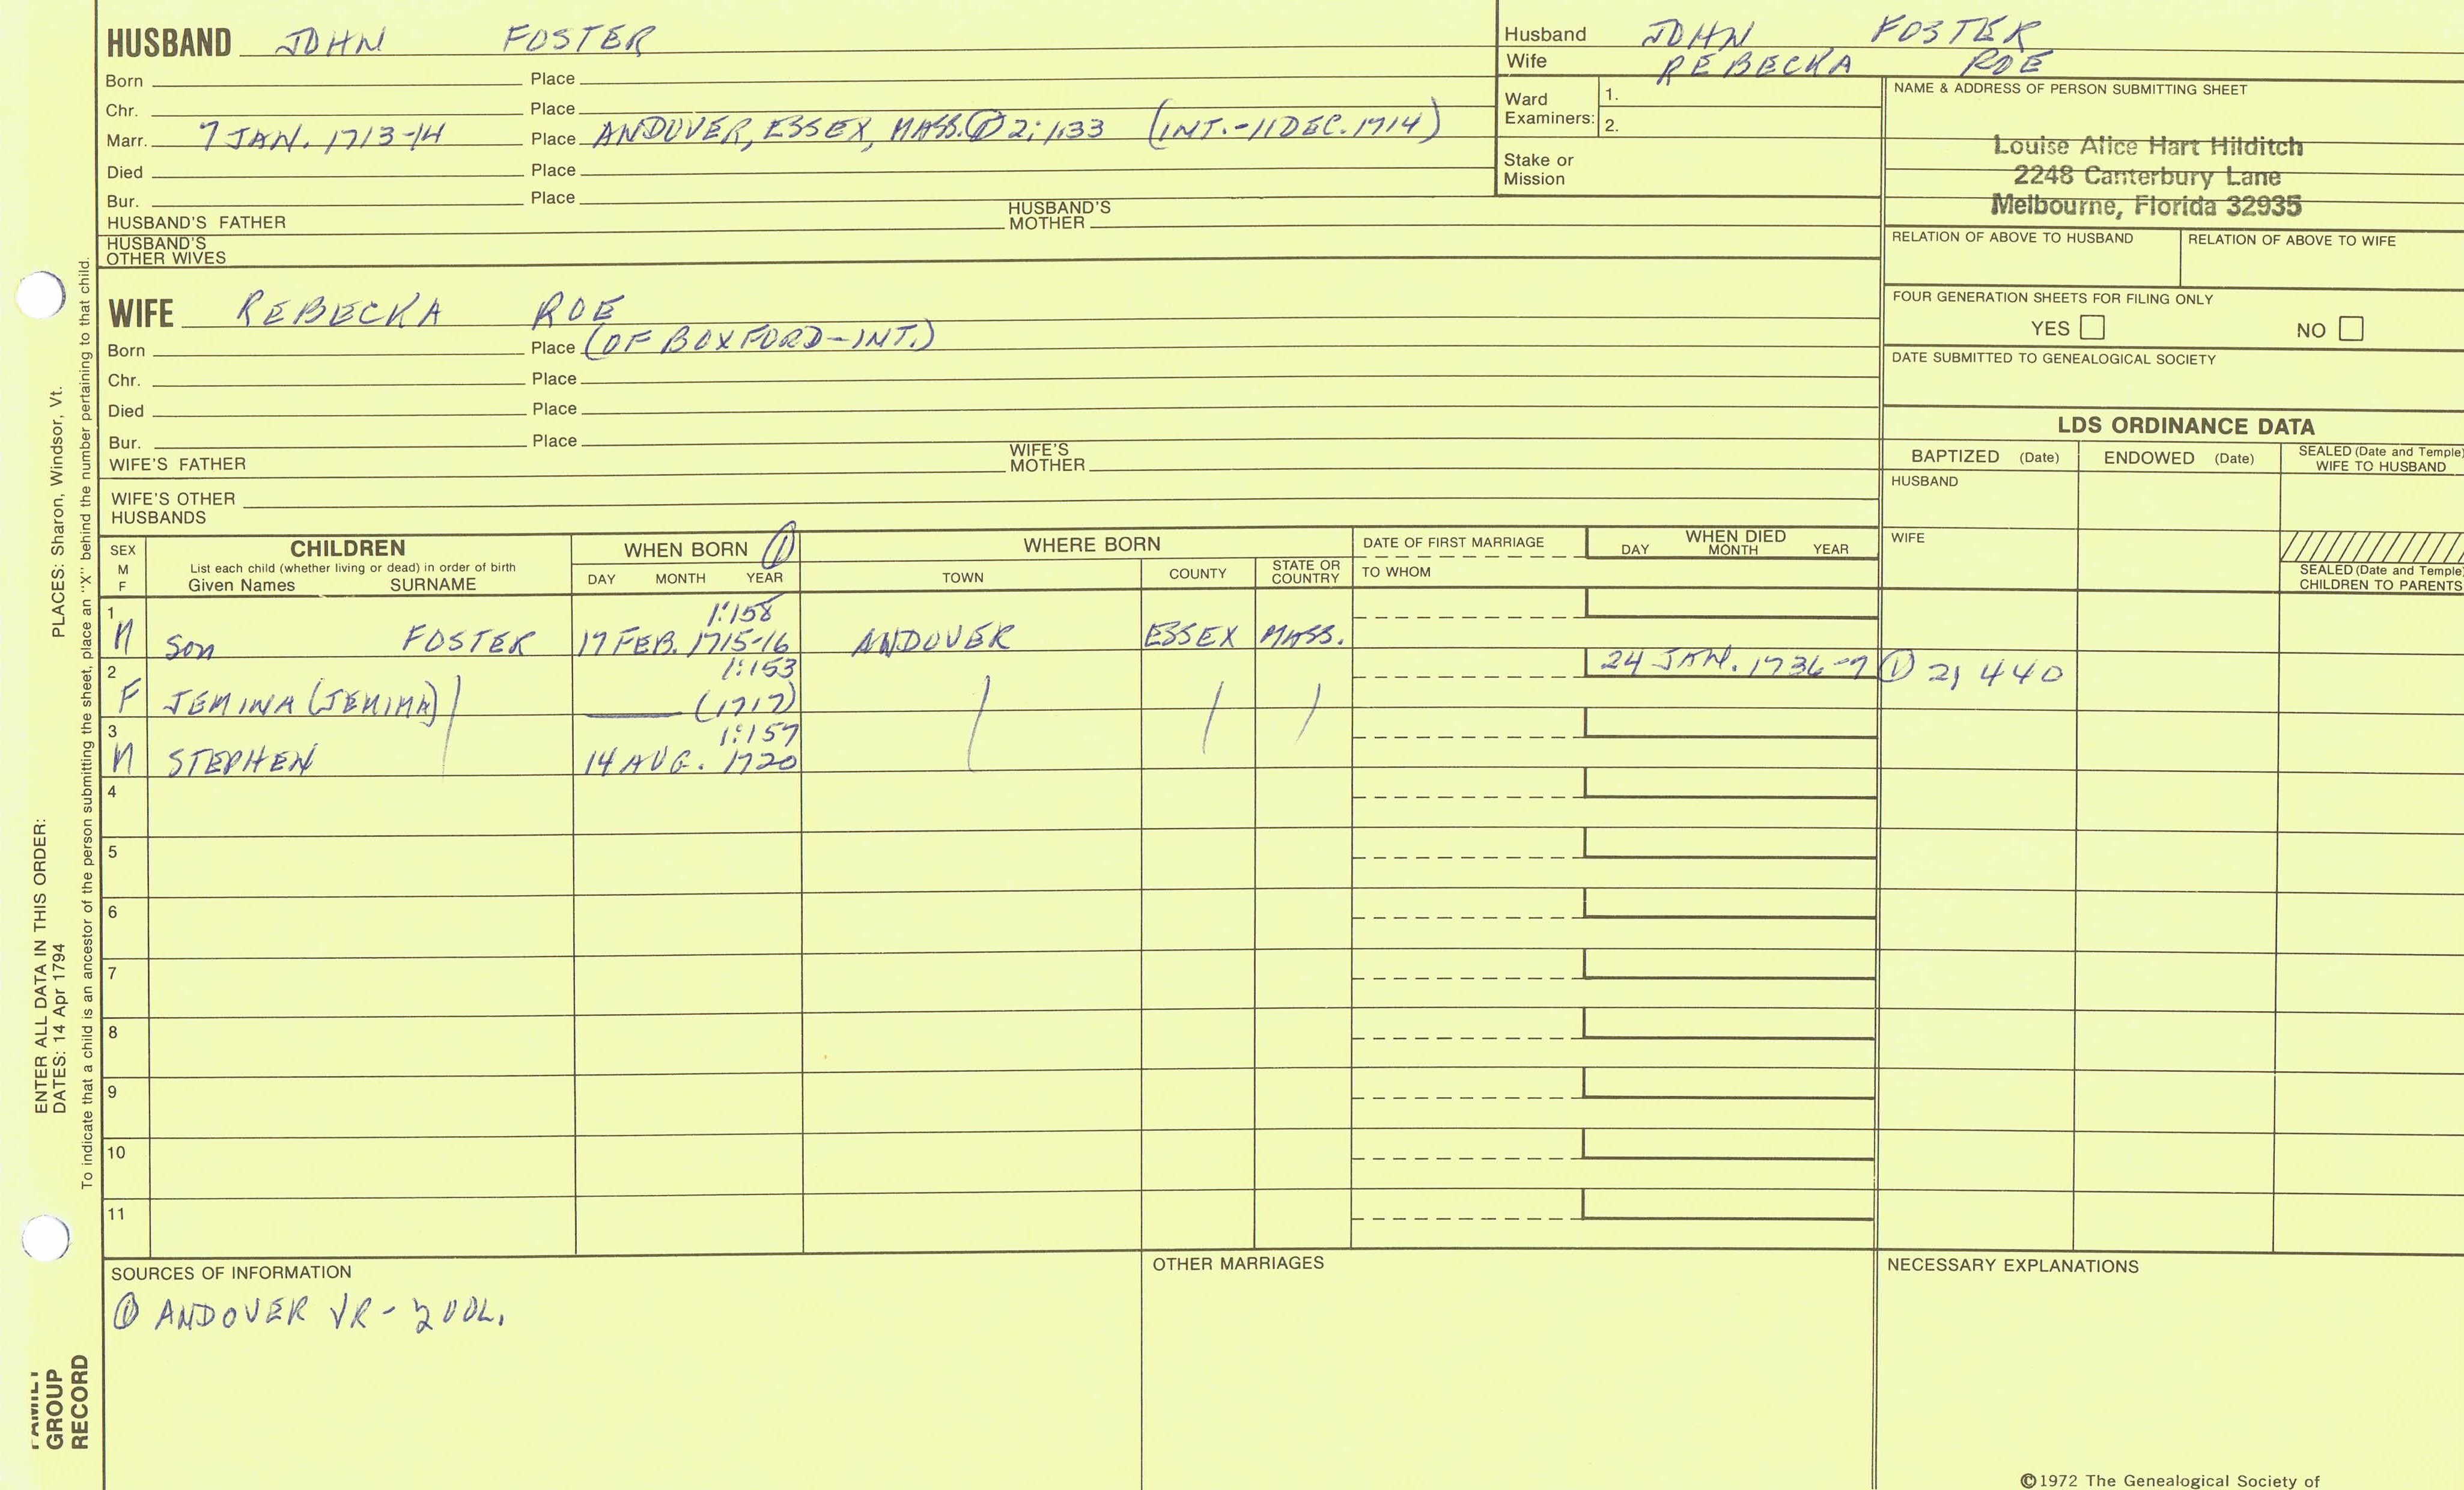 HUSBAND JOHN FOSTER
Born Place
Chr. Place
Marr. 7 JAN. 1713-14 Place ANDOVER, ESSEX, MASS. ① 2; 133 (INT.-11 DEC. 1714)
Died Place
Bur. Place
HUSBAND'S FATHER HUSBAND'S MOTHER
HUSBAND'S OTHER WIVES
Husband JOHN FOSTER
Wife REBECKA ROE
Ward Examiners: 1.
2.
Stake or Mission
NAME & ADDRESS OF PERSON SUBMITTING SHEET
Louise Alice Hart Hilditch
2248 Canterbury Lane
Melbourne, Florida 32935
RELATION OF ABOVE TO HUSBAND RELATION OF ABOVE TO WIFE
FOUR GENERATION SHEETS FOR FILING ONLY
YES NO
DATE SUBMITTED TO GENEALOGICAL SOCIETY
WIFE REBECKA ROE
Born Place (OF BOXFORD-INT.)
Chr. Place
Died Place
Bur. Place
WIFE'S FATHER WIFE'S MOTHER
WIFE'S OTHER HUSBANDS
LDS ORDINANCE DATA
BAPTIZED (Date) ENDOWED (Date) SEALED (Date and Temple) WIFE TO HUSBAND
HUSBAND
WIFE
SEALED (Date and Temple) CHILDREN TO PARENTS
SEX M F
CHILDREN
List each child (whether living or dead) in order of birth
Given Names SURNAME
WHEN BORN ①
DAY MONTH YEAR
WHERE BORN
TOWN COUNTY STATE OR COUNTRY
DATE OF FIRST MARRIAGE
TO WHOM
WHEN DIED
DAY MONTH YEAR
1 1:158
M Son FOSTER 17 FEB. 1715-16 ANDOVER ESSEX MASS.
2 1:153 24 JAN. 1736-7 ① 2; 440
F JEMINA (JEMIMA) (1717)
3 1:157
M STEPHEN 14 AUG. 1720
4
5
6
7
8
9
10
11
SOURCES OF INFORMATION
① ANDOVER VR - 2 VOL.
OTHER MARRIAGES
NECESSARY EXPLANATIONS
©1972 The Genealogical Society of
ENTER ALL DATA IN THIS ORDER:
DATES: 14 Apr 1794 PLACES: Sharon, Windsor, Vt.
To indicate that a child is an ancestor of the person submitting the sheet, place an "X" behind the number pertaining to that child.
FAMILY
GROUP
RECORD